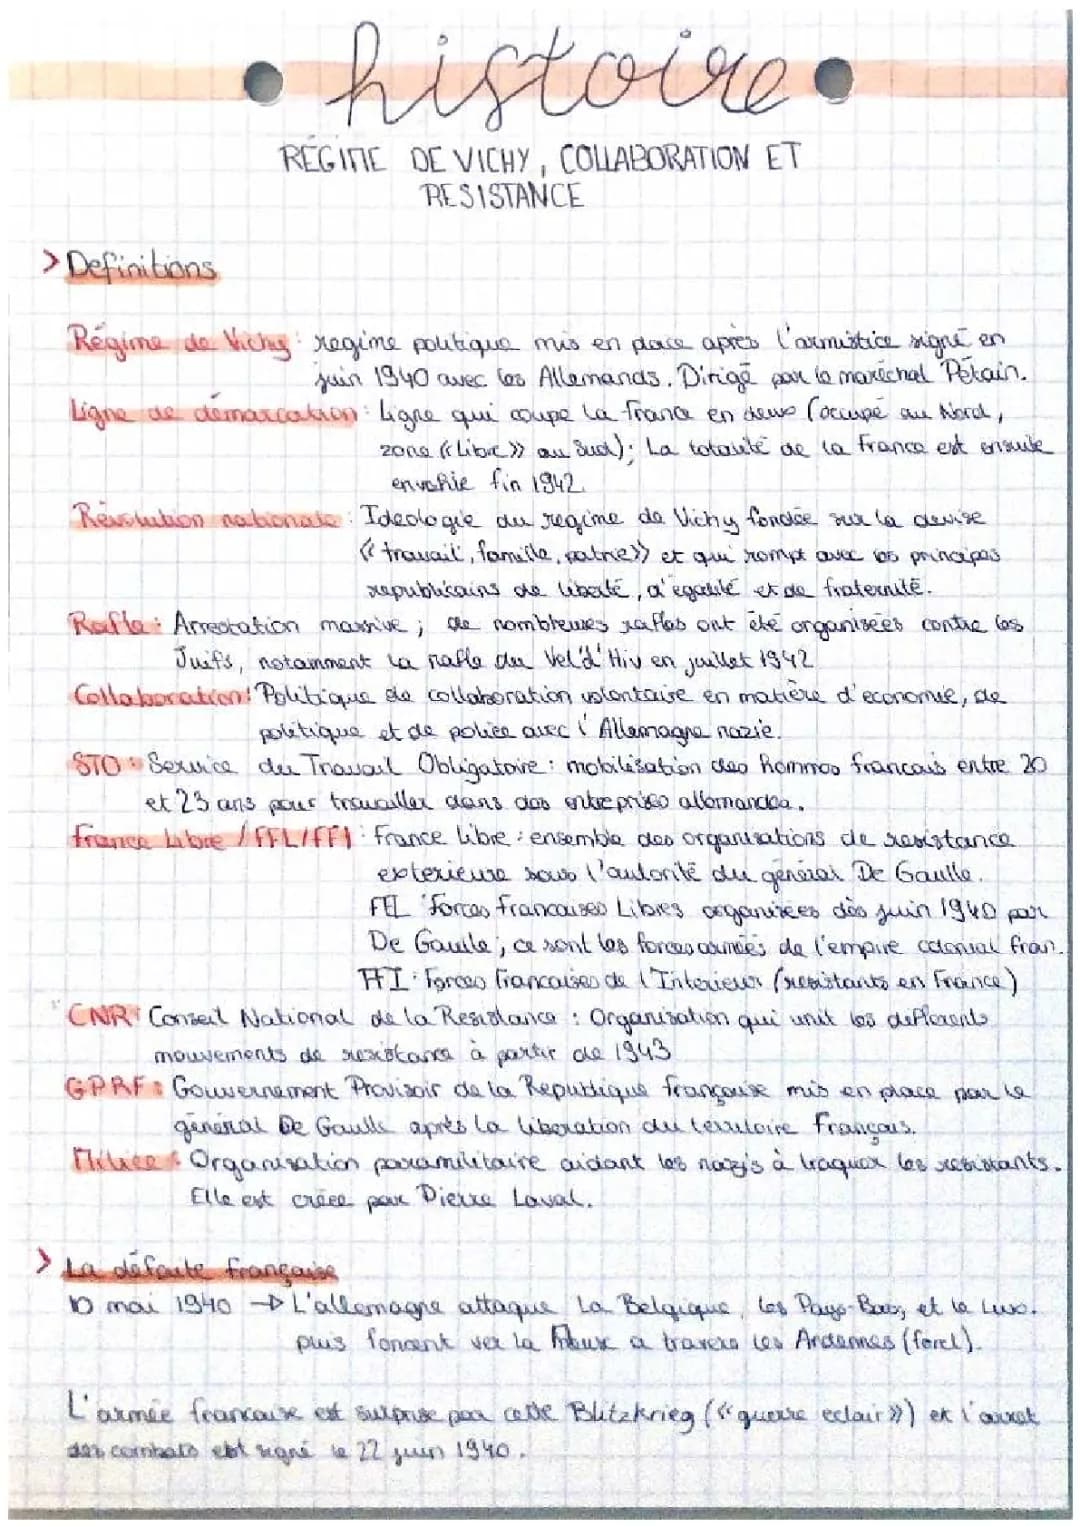 histoire
RÉGIME DE VICHY, COLLABORATION ET
RESISTANCE
> Definitions
Régime de Vichy : regime politique mis en place après l'armistice signé en
juin 1940 avec les Allemands. Dirigé par le maréchal Pétain.
Ligne de démarcation : Ligne qui coupe la France en deux (occupé au Nord,
zone «libre» au Sud); La totalité de la France est ensuite
envahie fin 1942.
Révolution nationale : Ideologie du regime de Vichy fondée sur la devise
«travail, famille, patrie» et qui rompt avec les principes
republicains de liberté, d'égalité et de fraternité.
Rafle : Arrestation massive ; de nombreuses rafles ont été organisées contre les
Juifs, notamment la rafle du Vel'd'Hiv en juillet 1942
Collaboration : Politique de collaboration volontaire en matière d'economie, de
politique et de police avec l'Allemagne nazie.
STO : Service du Travail Obligatoire : mobilisation des hommes francais entre 20
et 23 ans pour travailler dans des entreprises allemandes.
France Libre / FFL/FFI : France Libre : ensemble des organisations de resistance
exterieure sous l'autorité du général De Gaulle.
FFL Forces Francaises Libres organisées dès juin 1940 par
De Gaulle ; ce sont les forces armées de l'empire colonial fran.
FFI : Forces Francaises de l'Interieur (resistants en France)
CNR : Conseil National de la Resistance : Organisation qui unit les differents
mouvements de resistance à partir de 1943
GPRF : Gouvernement Provisoir de la Republique française mis en place par le
général De Gaulle après la liberation du territoire Français.
Milice : Organisation paramilitaire aidant les nazis à traquer les resistants.
Elle est créée par Pierre Laval.
> La défaite française
10 mai 1940 → L'allemagne attaque La Belgique, les Pays-Bas, et le Lux.
puis foncent ver la Meuse a travers les Ardennes (foret).
L'armée francaise est surprise par cette Blitzkrieg («guerre eclair») et l'arret
des combats est signé le 22 juin 1940.